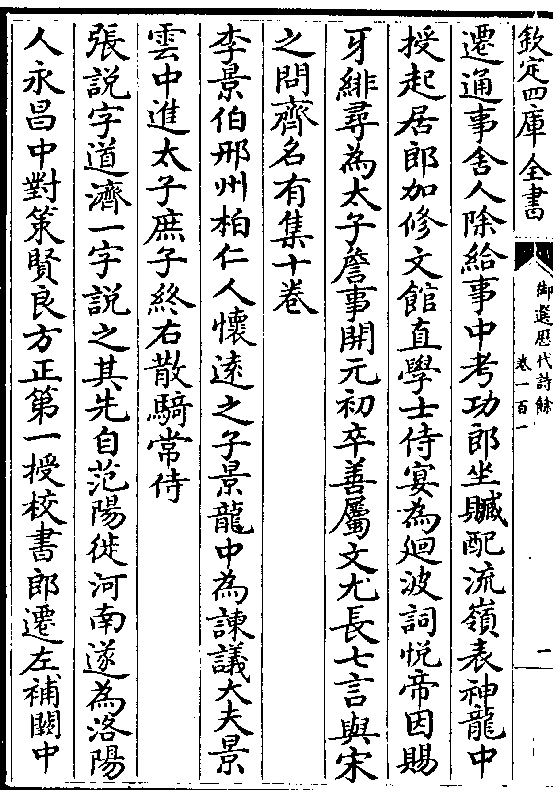 欽定四庫全書
御選歷代詩餘
卷一百一
一
遷通事舍人除給事中考功郎坐贓配流嶺表神龍中
授起居郎加修文館直學士侍宴為廻波詞悅帝因賜
牙緋尋為太子詹事開元初卒善屬文尤長七言與宋
之問齊名有集十卷
李景伯邢州柏仁人懷逺之子景龍中為諫議大夫景
雲中進太子庶子終右散騎常侍
張説字道濟一字説之其先自范陽徙河南遂為洛陽
人永昌中對策賢良方正第一授校書郎遷左補闕中